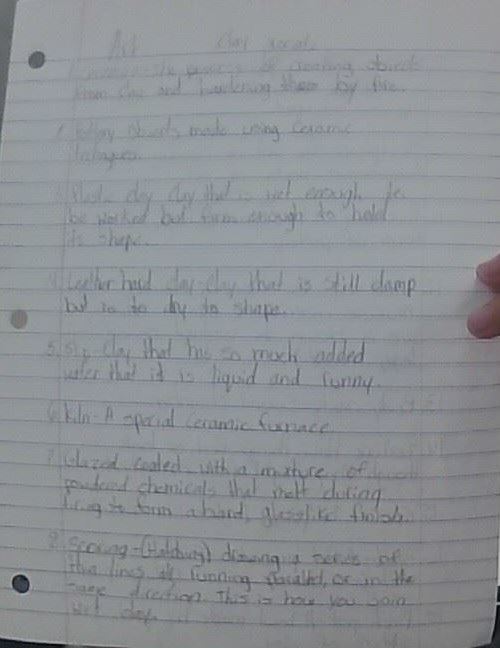 Art Clay vocab
1. ceramics-the process of creating objects
from clay and hardening them by fire.
2. Pottery objects made using ceramic
3. Plastic clay clay that is wet enough to
be worked but firm enough to hold
its shape.
4. Leather hard clay-clay that is still damp
but is to dry to shape.
5. Slip clay that has so much added
water that it is liquid and runny.
6. Kiln-A special ceramic furnace
7. Glazed coated with a mixture of
powdered chemicals that melt during
firing to form a hard, glasslike finish.
8. Scoring- drawing a series of
thin lines all running parallel, or in the
same direction. This is how you join
clay.